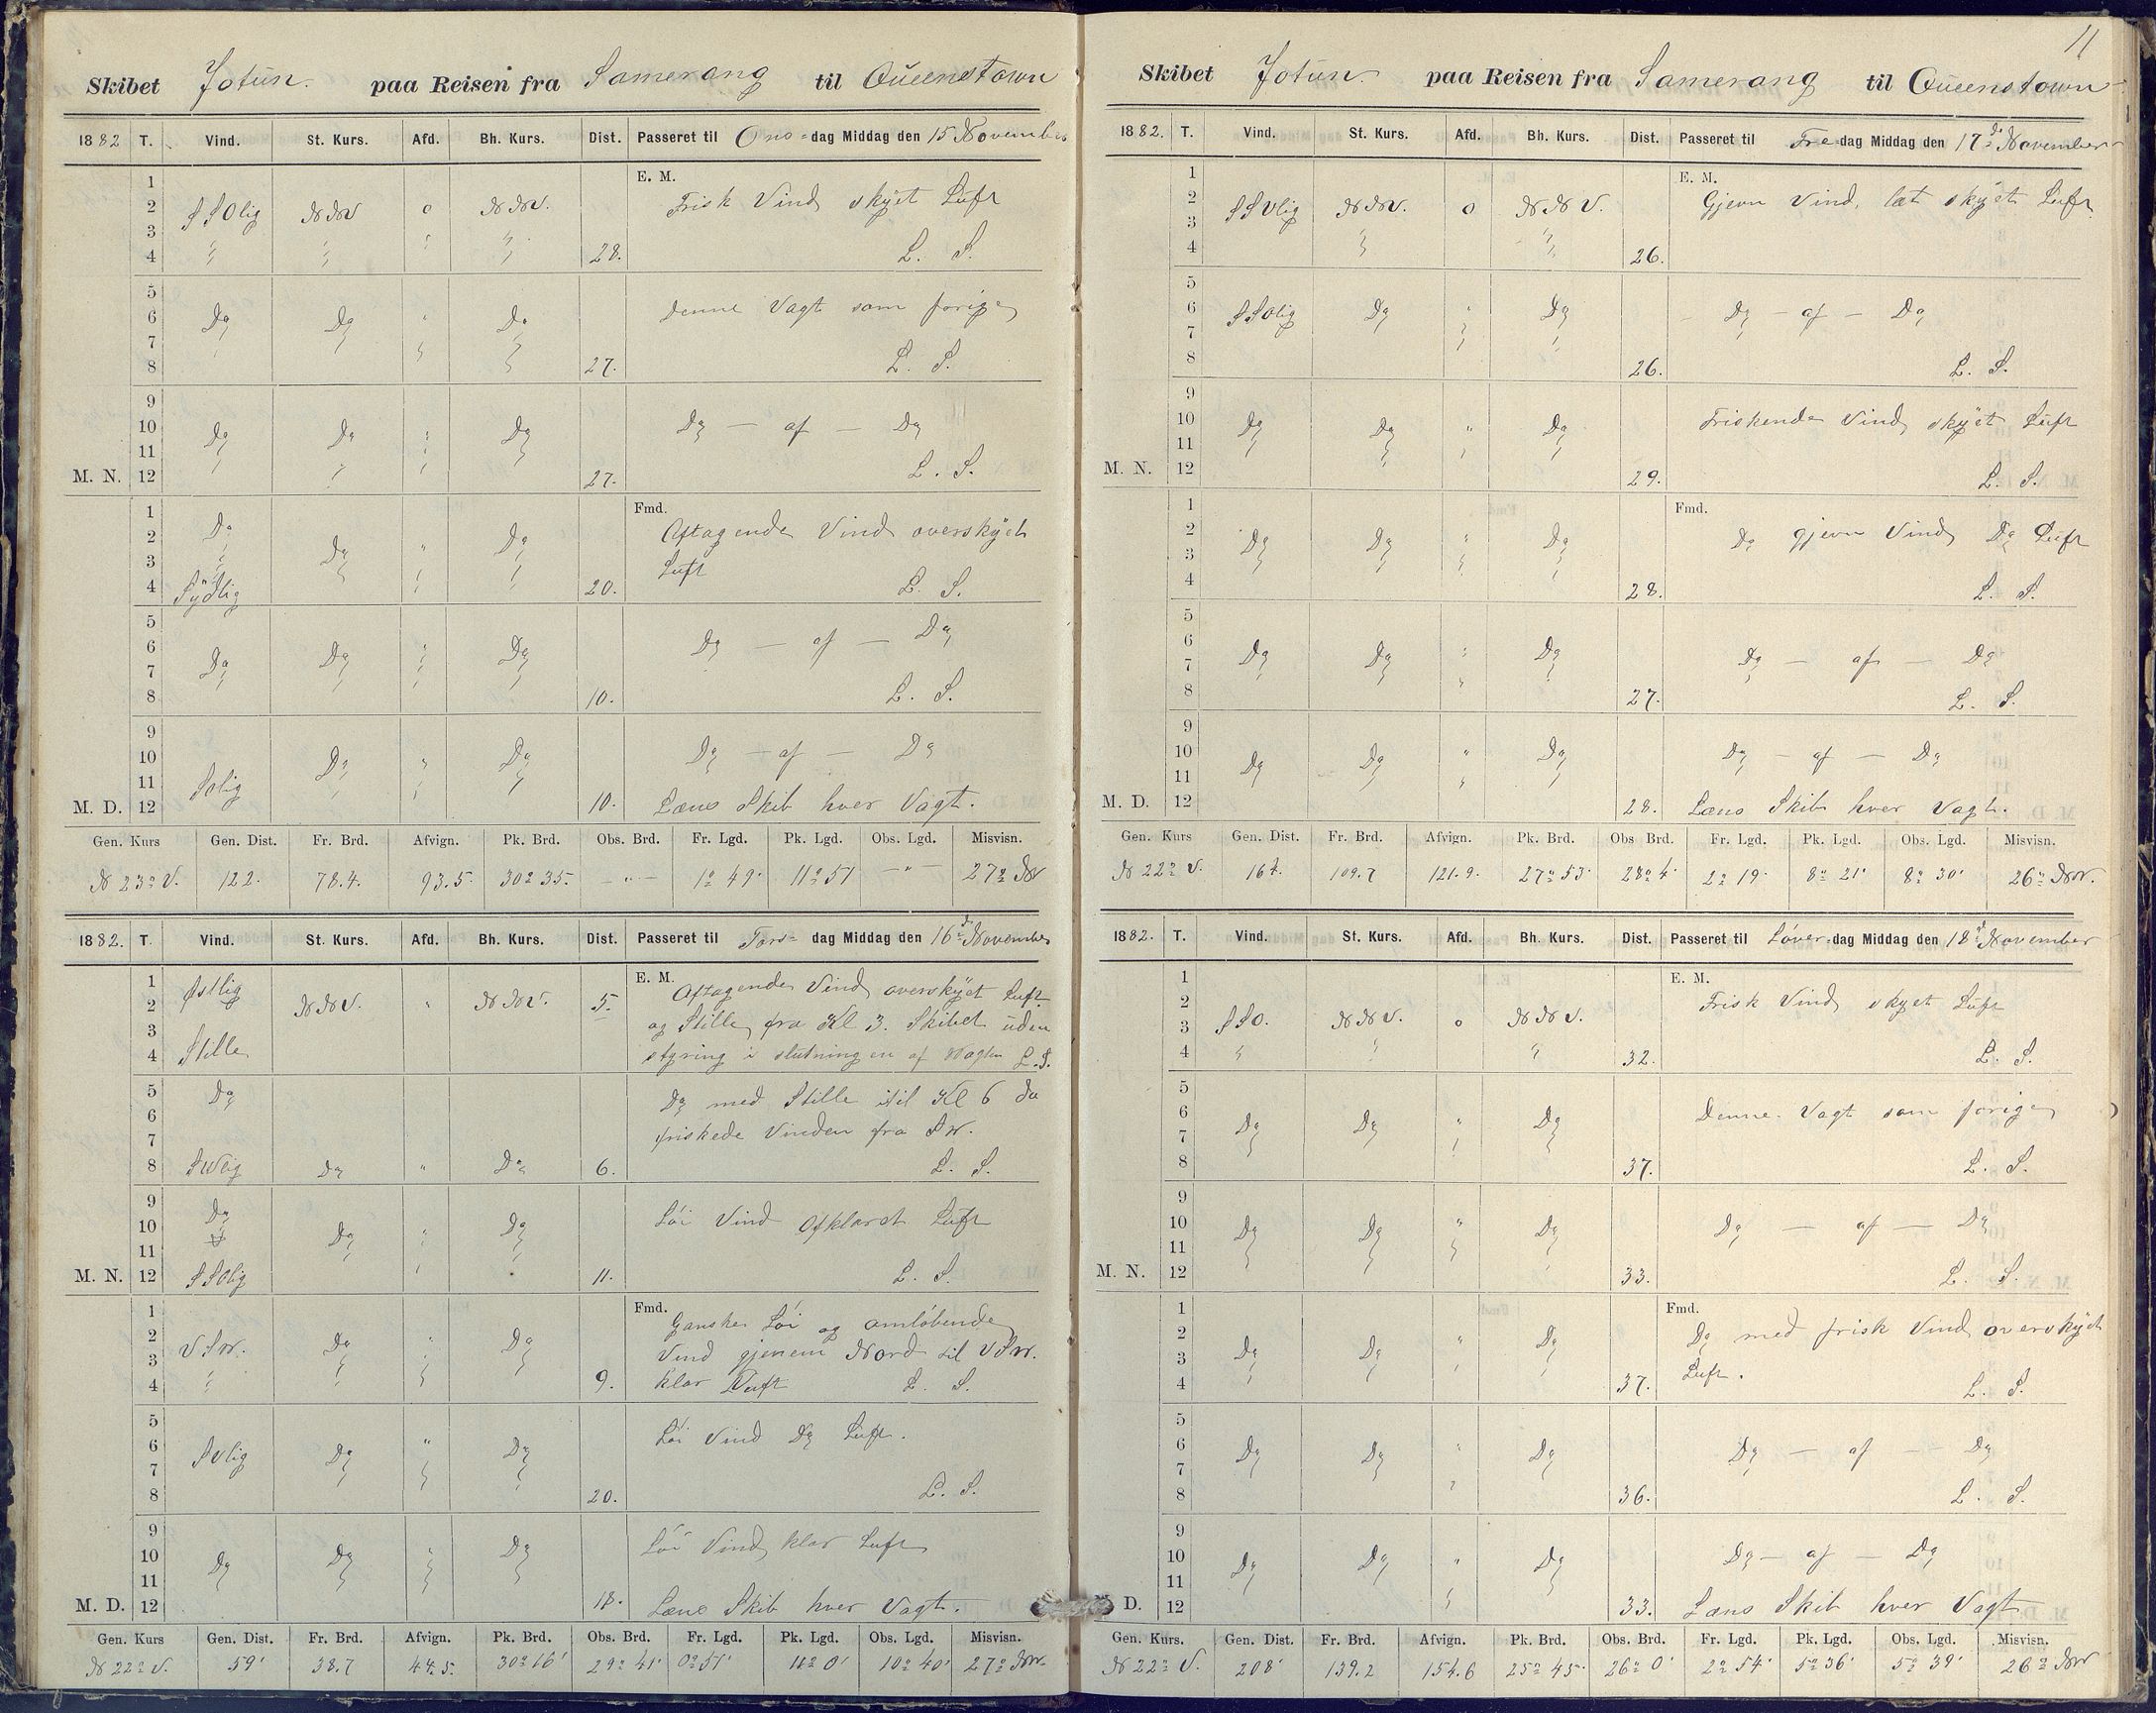 Skibet Jotun. paa Reisen fra Samerang til Queenstown
1882 T. Vind. St. Kurs. Afd. Bh. Kurs. Dist. Passeret til Ons-dag Middag den 15 November
1
2 SSOlig NNV o NNV. E. M. Frisk Vind skyet Luft
3
4 " " " " 28. L. S.
5
6 Do Do " Do Denne Vagt som forige
7
8 27. L. S.
9
10 Do Do " Do Do — af — Do
11
M. N. 12 27. L. S.
1 Fmd.
2 Do Do " Do Aftagende Vind overskyet
3 Luft
4 Sydlig 20. L. S.
5
6 Do Do " Do Do — af — Do
7
8 10. L. S.
9
10 Do " Do Do — af — Do
11 SOlig
M. D. 12 10. Læns Skib hver Vagt.
Gen. Kurs Gen. Dist. Fr. Brd. Afvign. Pk. Brd. Obs. Brd. Fr. Lgd. Pk. Lgd. Obs. Lgd. Misvisn.
N 23° V. 122. 78.4. 93.5. 30° 35. — " — 1° 49' 11° 51 — " — 27° NW
1882. T. Vind. St. Kurs. Afd. Bh. Kurs. Dist. Passeret til Tors- dag Middag den 16de November
1 Østlig E. M. Aftagende Vind overskyet Luft
2 NNV. " NNV. 5.
3 og Stille fra Kl 3. Skibet uden
4 Stille styring i slutningen af Vagten L. S.
5 Do Do med Stille til Kl 6 da
6
7 friskede Vinden fra SW.
8 SWlig Do " Do 6. L. S.
9 Do
10 Do " Do Løi Vind Afklaret Luft
11
M. N. 12 SSOlig 11. L. S.
1 Fmd. Ganske Løi og omløbende
2 VSW. Do " Do
3 Vind gjenem Nord til VSW.
4 " 9. klar Luft L. S.
5
6 SVlig Do " Do Løi Vind Do Luft.
7
8 20. L. S.
9
10 Do Do " Do Løi Vind klar Luft
11
M. D. 12 18. Læns Skib hver Vagt.
Gen. Kurs Gen. Dist. Fr. Brd. Afvign. Pk. Brd. Obs. Brd. Fr. Lgd. Pk. Lgd. Obs. Lgd. Misvisn.
N 22° V. 59' 38.7 44.5. 30° 16' 29° 41' 0° 51' 11° 0' 10° 40' 27° NW.
11
Skibet Jotun. paa Reisen fra Samerang til Queenstown
1882. T. Vind. St. Kurs. Afd. Bh. Kurs. Dist. Passeret til Fre-dag Middag den 17de November
1 E. M.
2 SSVlig NNV. o NNV. Gjevn Vind, let skyet Luft
3
4 " " 26.
5
6 SSOlig Do " Do Do — af — Do
7
8 26. L. S.
9
10 Do Do " Do Friskende Vind skyet Luft
11
M. N. 12 29. L. S.
1 Fmd.
2 Do Do " Do Do gjevn Vind Do Luft
3
4 28. L. S.
5
6 Do Do " Do Do — af — Do
7
8 27. L. S.
9
10 Do Do " Do Do — af — Do
11
M. D. 12 28. Læns Skib hver Vagt.
Gen. Kurs Gen. Dist. Fr. Brd. Afvign. Pk. Brd. Obs Brd. Fr. Lgd. Pk. Lgd. Obs. Lgd. Misvisn.
N 22° V. 164. 109.7 121.9. 27° 55' 28° 4' 2° 19' 8° 21' 8° 30' 26° NW.
1882. T. Vind. St. Kurs. Afd. Bh. Kurs. Dist. Passeret til Löver-dag Middag den 18de November
1 E. M.
2 Frisk Vind skyet Luft
3 SSO. NNV. o NNV.
4 " " " 32. L. S.
5
6 Do Do " Do Denne Vagt som forige
7
8 37. L. S.
9
10 Do Do " Do Do — af — Do
11
M. N. 12 33. L. S.
1 Fmd.
2 Do Do " Do Do med frisk Vind overskyet
3 Luft.
4 37. L. S.
5
6 Do Do " Do Do — af — Do
7
8 36. L. S.
9
10 Do Do " Do Do — af — Do
11
D. 12 33. Læns Skib hver Vagt
Gen. Kurs. Gen. Dist. Fr. Brd. Afvign. Pk. Brd. Obs. Brd. Fr. Lgd. Pk. Lgd. Obs. Lgd. Misvisn.
N 22° V. 208' 139.2 154.6 25° 45' 26° 0' 2° 54' 5° 36' 5° 39' 26° NW